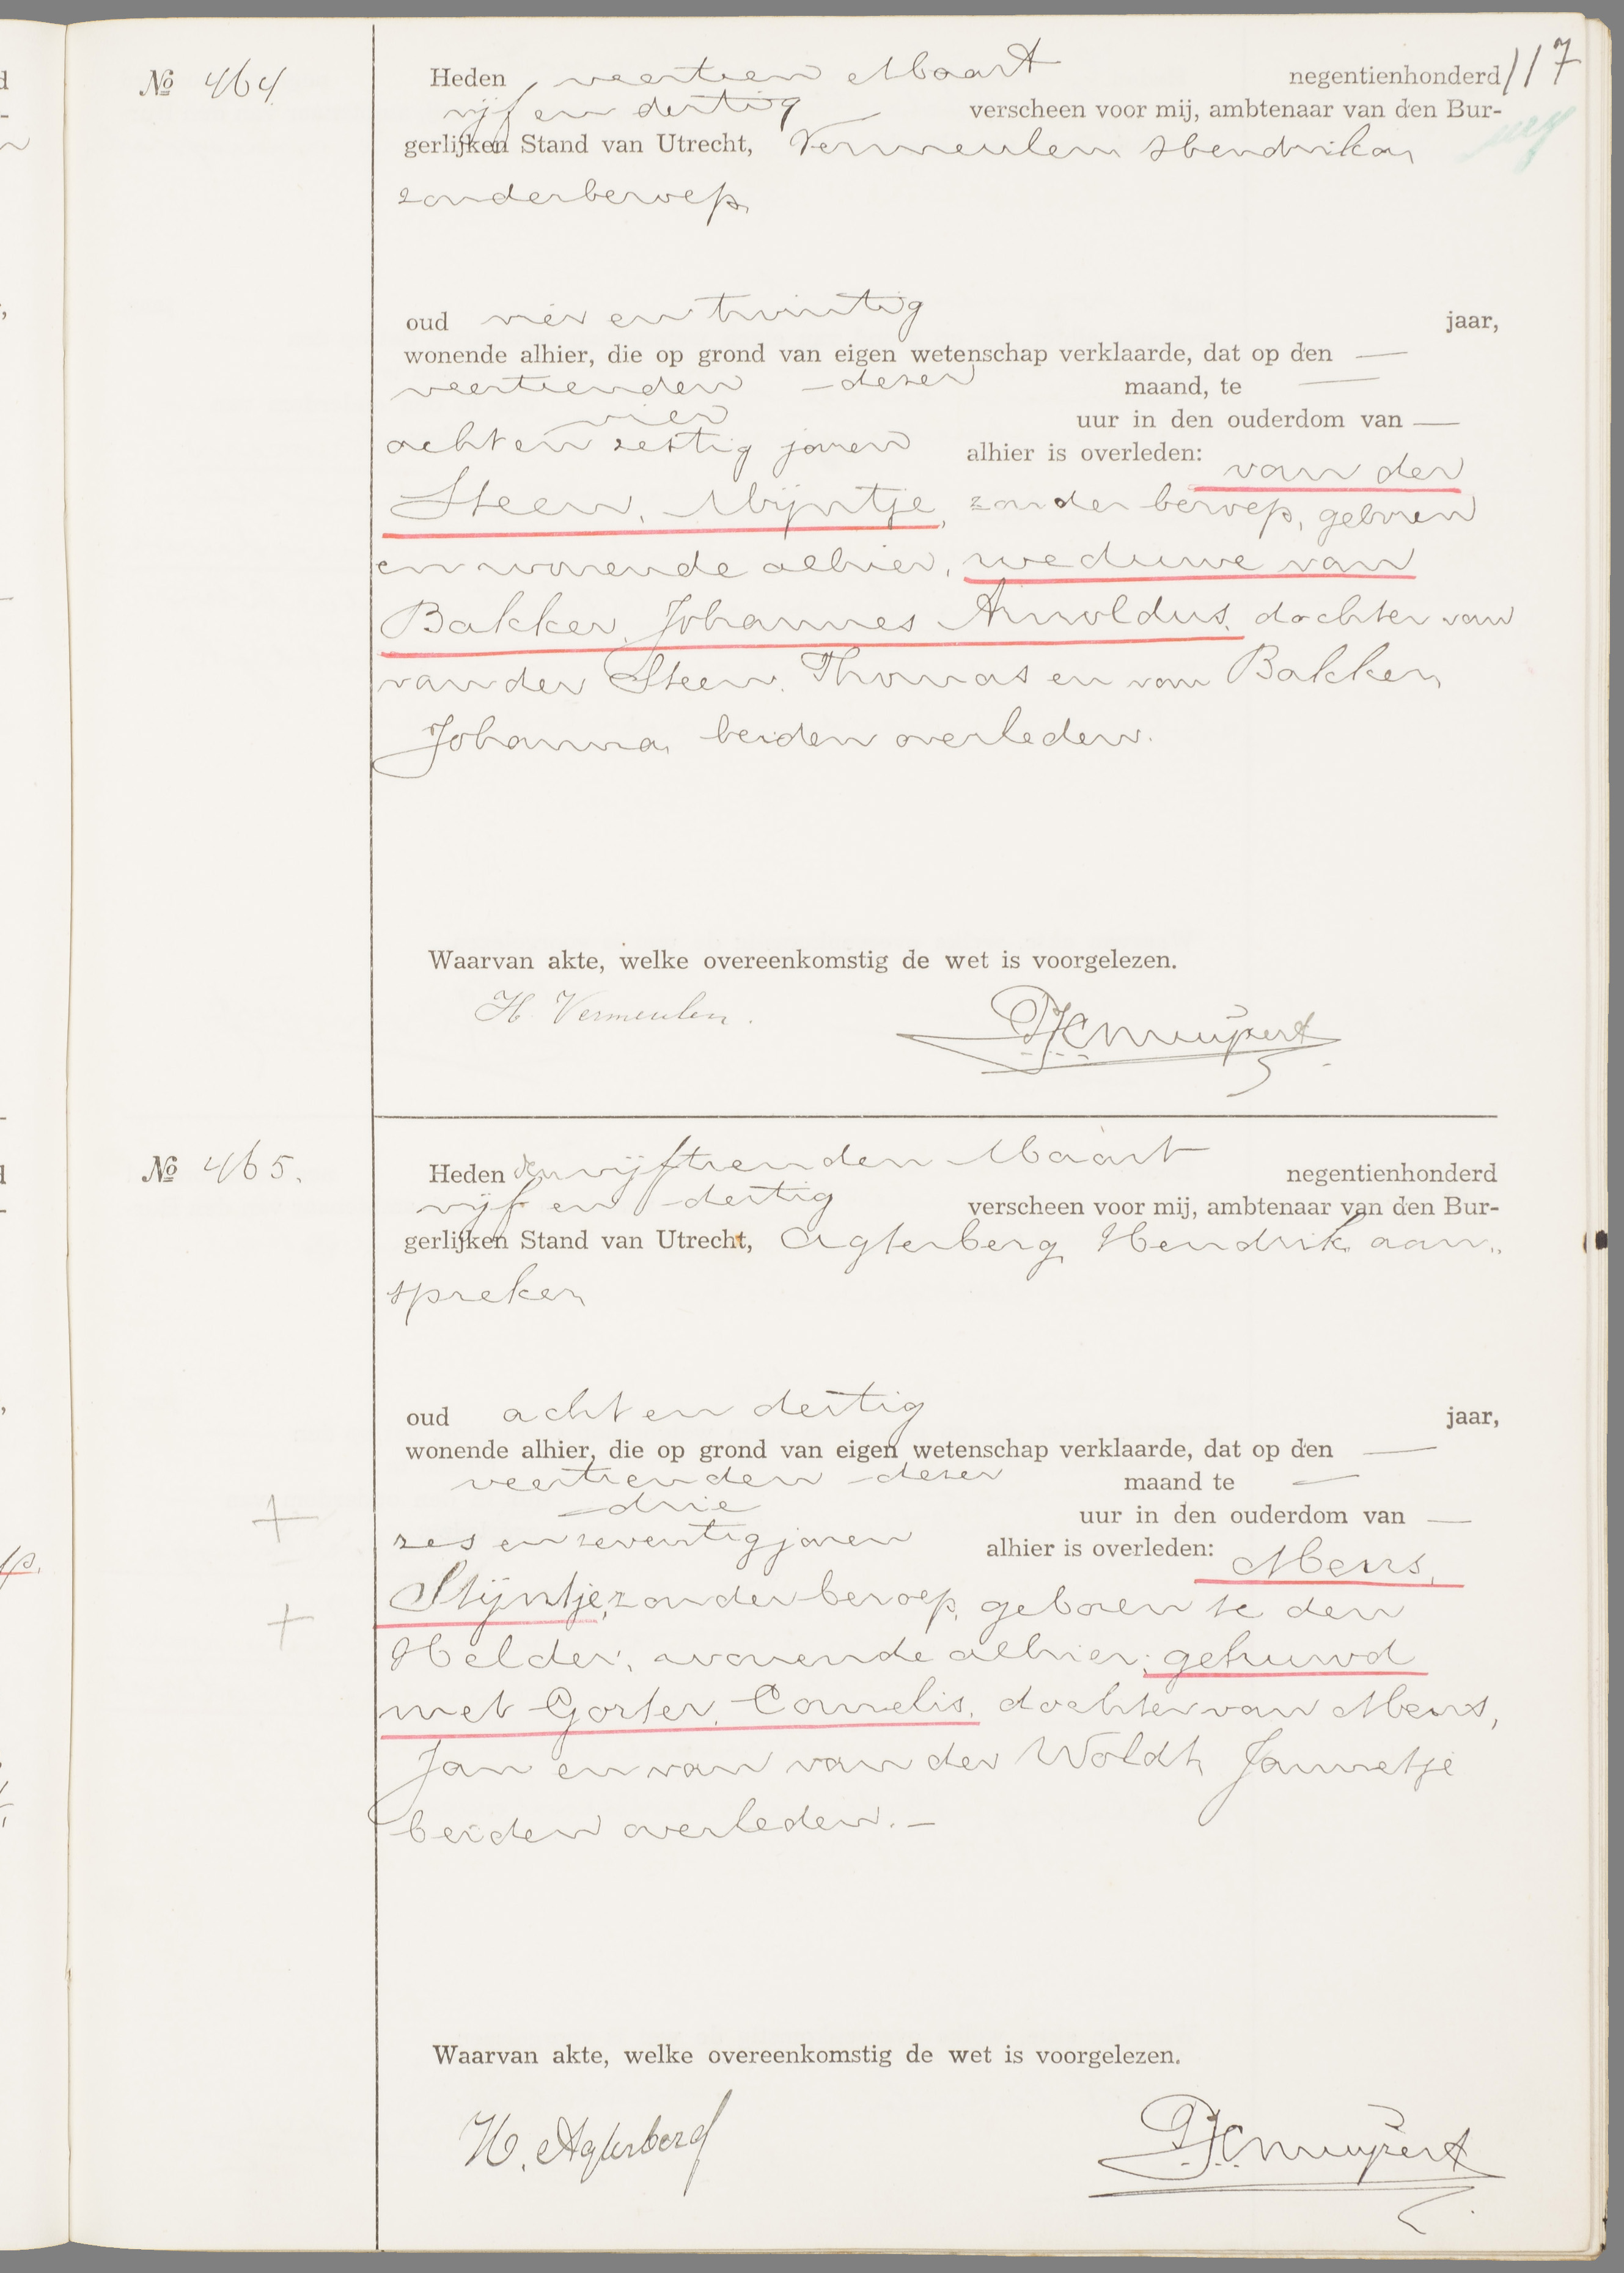 117
№ 464
Heden veertien Maart negentienhonderd
vijf en dertig verscheen voor mij, ambtenaar van den Bur-
gerlijken Stand van Utrecht, Vermeulen Hendrika,
zonder beroep,
oud vier en twintig jaar,
wonende alhier, die op grond van eigen wetenschap verklaarde, dat op den —
veertienden dezer maand, te —
vier uur in den ouderdom van —
acht en zestig jaren alhier is overleden: van der
Steen, Mijntje, zonder beroep, geboren
en wonende alhier, weduwe van
Bakker, Johannes Arnoldus, dochter van
van der Steen, Thomas en van Bakker,
Johanna, beiden overleden.
Waarvan akte, welke overeenkomstig de wet is voorgelezen.
H. Vermeulen.
№ 465.
Heden den vijftienden Maart negentienhonderd
vijf en dertig verscheen voor mij, ambtenaar van den Bur-
gerlijken Stand van Utrecht, Agterberg, Hendrik, aan„
spreker,
oud acht en dertig jaar,
wonende alhier, die op grond van eigen wetenschap verklaarde, dat op den —
veertienden dezer maand te —
drie uur in den ouderdom van —
zes en zeventig jaren alhier is overleden: Mens,
Stijntje, zonder beroep, geboren te den
Helder, wonende alhier, gehuwd
met Gorter, Cornelis, dochter van Mens,
Jan en van van der Woldt, Jannetje
beiden overleden. —
Waarvan akte, welke overeenkomstig de wet is voorgelezen.
H. Agterberg